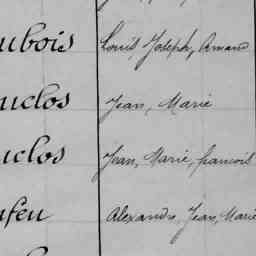 ubois Louis, Joseph, Amand
uclos Jean, Marie
uclos Jean, Marie, francois
ufeu Alexandre, Jean, Marie